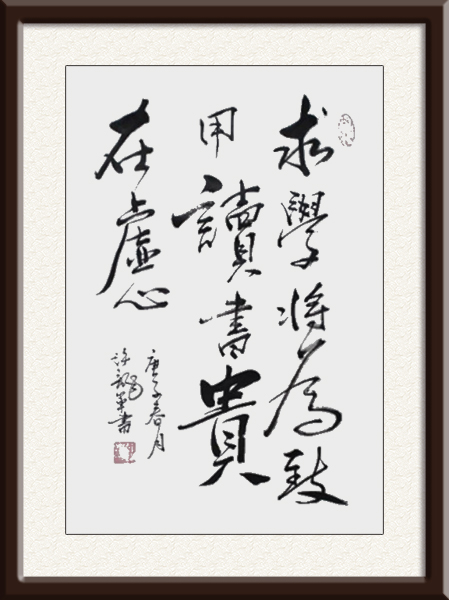 求學將為致
用讀書貴
在虛心
庚子春月